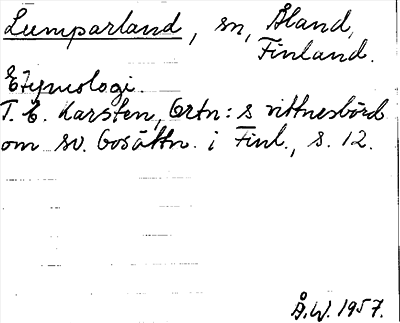 Lumparland, sn, Åland,
Finland.
Etymologi.
T. E. Karsten, Ortn:s vittnesbörd
om sv. bosättn. i Finl., s. 12.
Å.W. 1957.